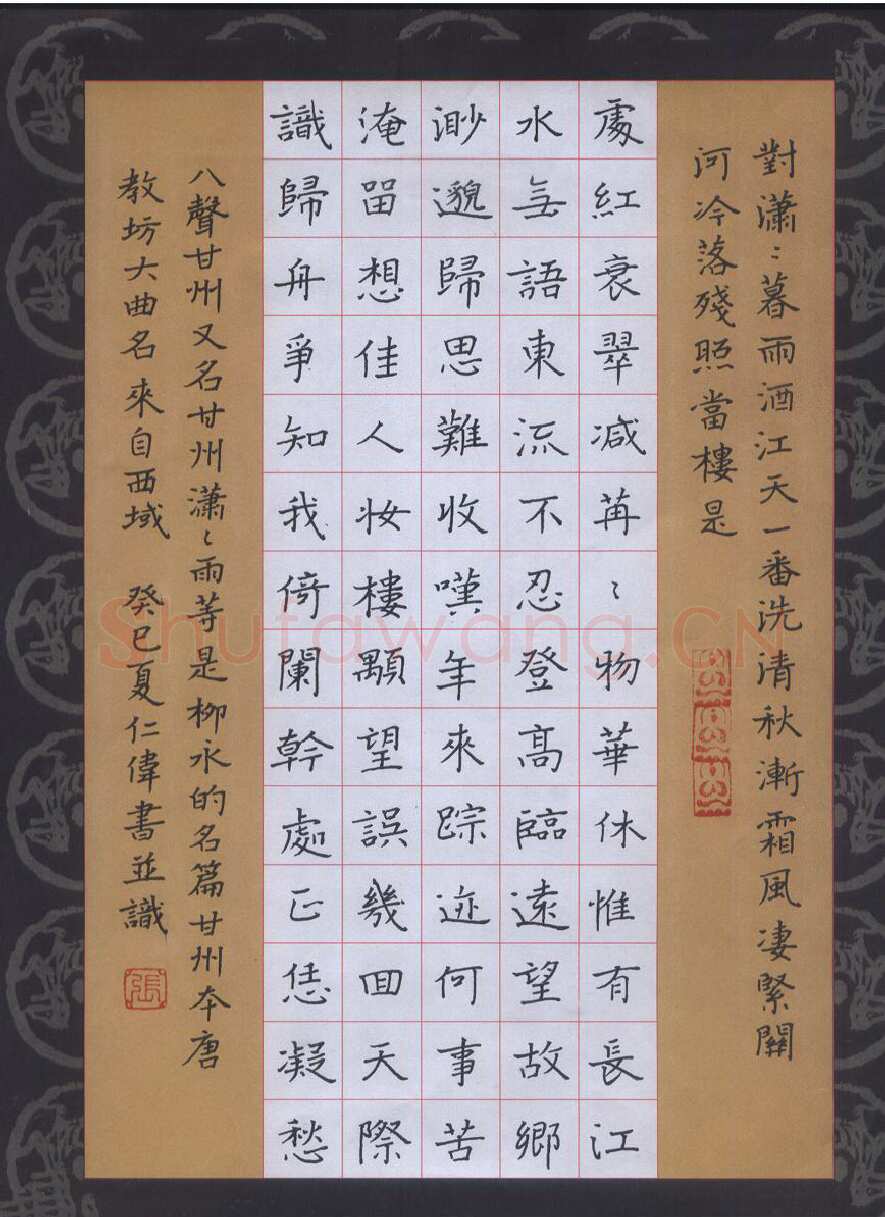 對瀟〻暮雨洒江天一番洗清秋漸霜風凄緊關
河冷落殘照當樓是
處紅衰翠減苒〻物華休惟有長江
水無語東流不忍登高臨遠望故鄉
渺邈歸思難收嘆年來踪迹何事苦
淹留想佳人妝樓顒望誤幾回天際
識歸舟爭知我倚闌幹處正恁凝愁
八聲甘州又名甘州瀟〻雨等是柳永的名篇甘州本唐
教坊大曲名來自西域 癸巳夏仁偉書並識
張
Shufawang.CN